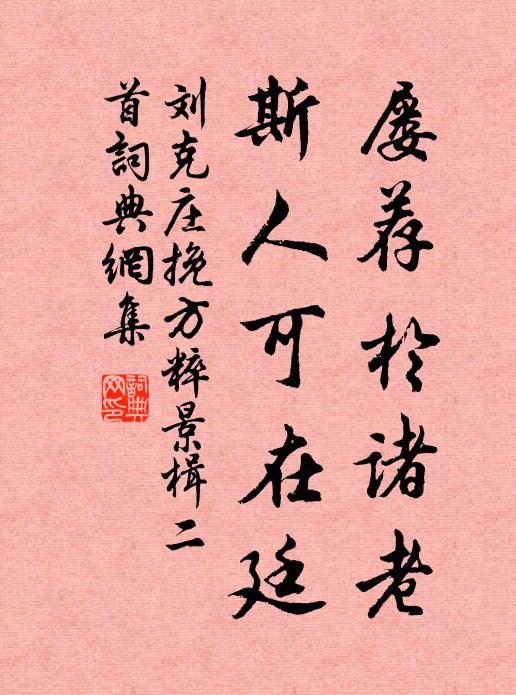 屡荐於诸老
斯人可在廷
刘克庄挽方粹景楫二
首詞典網集
詞典
网印